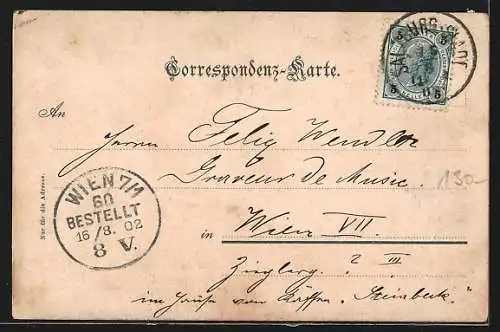 Correspondenz-Karte.
SALZBURG STADT
5 5
5 5
An
Herrn Felix Wendler
Graveur de Music.
130-
in Wien VII.
Zieglerg. 2 III
im Hause von "Steinbeck".
Nur für die Adresse.
WIEN 7/1
60
BESTELLT
16/8. 02
8 V.